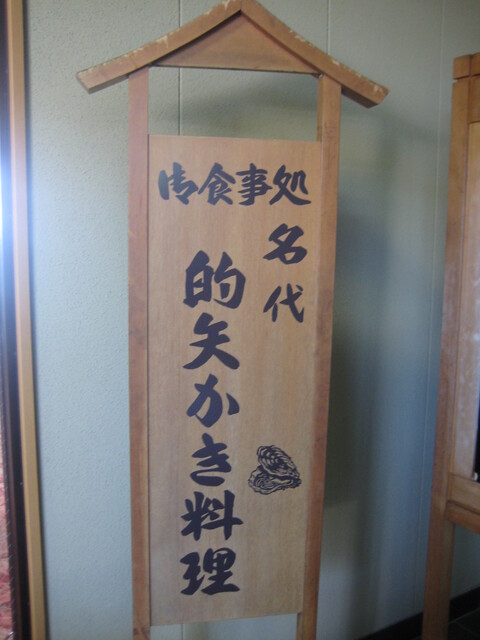 御食事処
名代
的矢かき料理